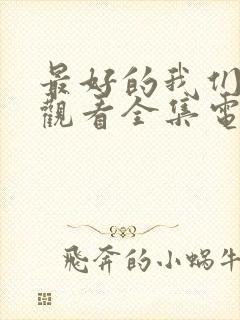 最好的我们
觀看全集電
飛奔的小蝸牛